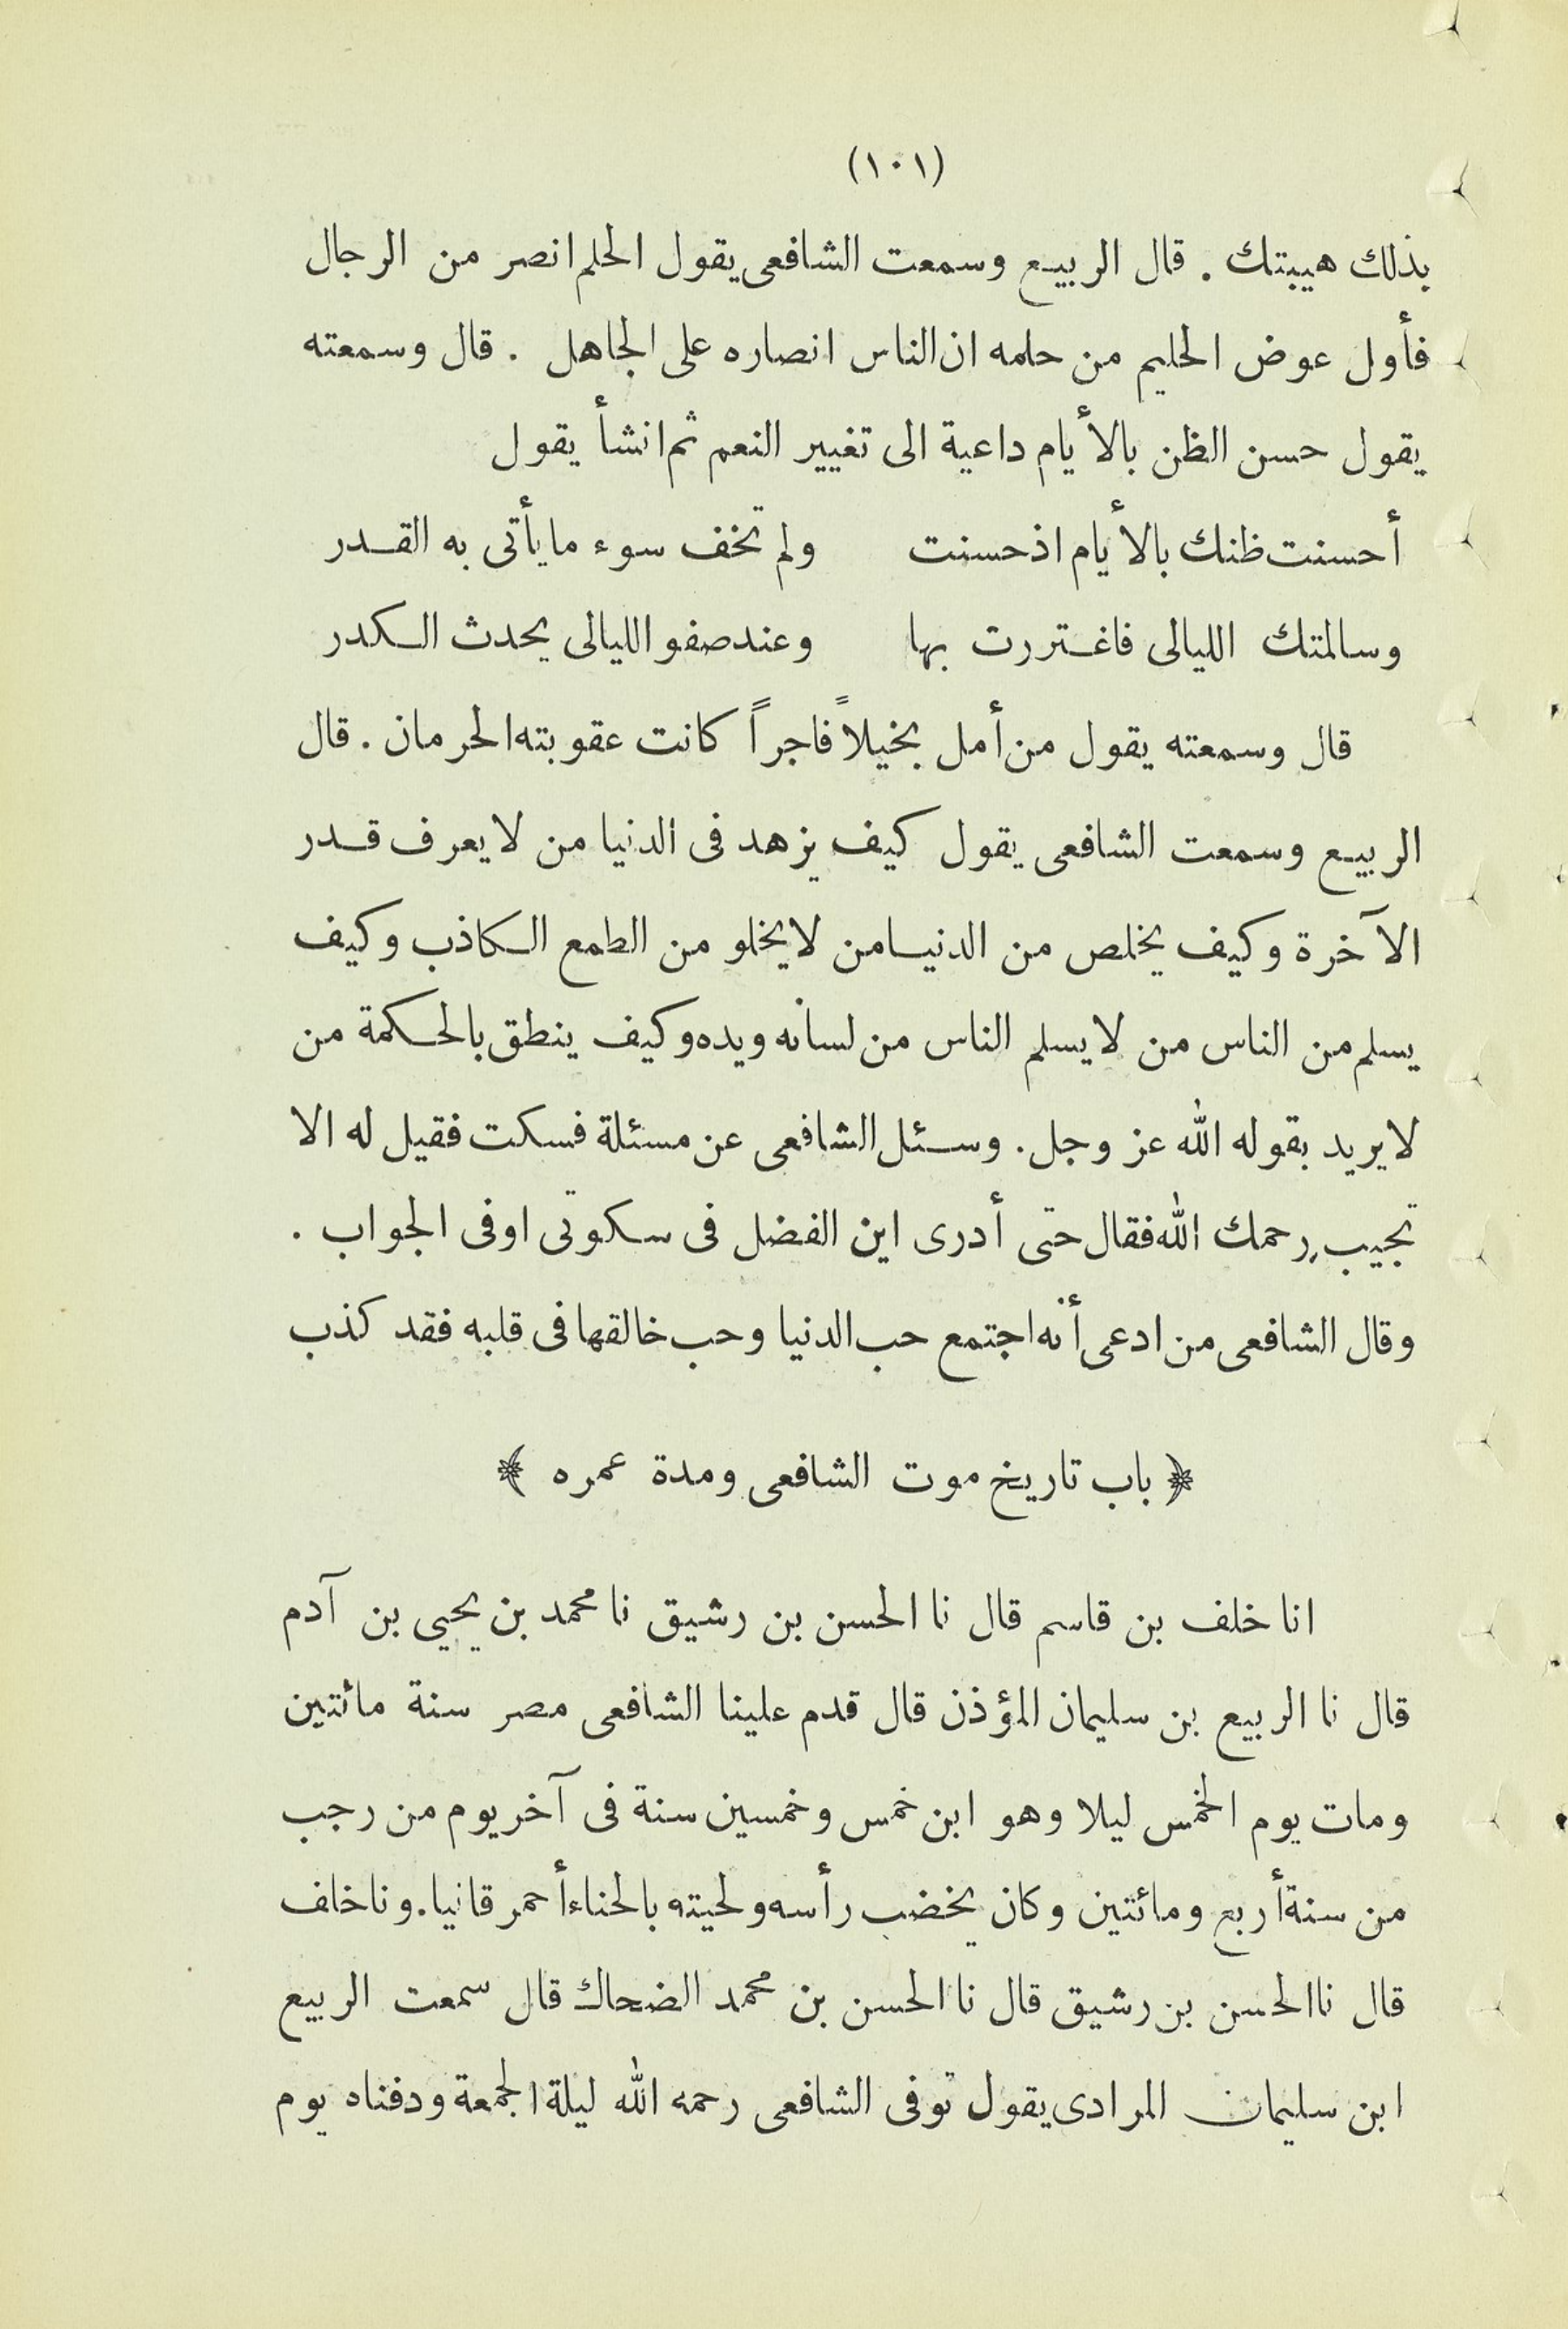 (١٠١)
بذلك هيبتك . قال الربيع وسمعت الشافعى يقول الحلم انصر من الرجال
فأول عوض الحليم من حلمه ان الناس انصاره على الجاهل . قال وسمعته
يقول حسن الظن بالأيام داعية الى تغيير النعم ثم انشأ يقول
أحسنت ظنك بالأيام اذ حسنت ولم تخف سوء ما يأتى به القدر
وسالمتك الليالى فاغتررت بها وعند صفو الليالى يحدث الكدر
قال وسمعته يقول من أمل بخيلاً فاجراً كانت عقوبته الحرمان . قال
الربيع وسمعت الشافعى يقول كيف يزهد فى الدنيا من لا يعرف قدر
الآخرة وكيف يخلص من الدنيا من لا يخلو من الطمع الكاذب وكيف
يسلم من الناس من لا يسلم الناس من لسانه ويده وكيف ينطق بالحكمة من
لا يريد بقوله الله عز وجل . وسئل الشافعى عن مسئلة فسكت فقيل له الا
تجيب رحمك الله فقال حتى أدرى اين الفضل فى سكوتى او فى الجواب .
وقال الشافعى من ادعى أنه اجتمع حب الدنيا وحب خالقها فى قلبه فقد كذب
﴿ باب تاريخ موت الشافعى ومدة عمره ﴾
انا خلف بن قاسم قال نا الحسن بن رشيق نا محمد بن يحيى بن آدم
قال نا الربيع بن سليمان المؤذن قال قدم علينا الشافعى مصر سنة مائتين
ومات يوم الخمس ليلا وهو ابن خمس وخمسين سنة فى آخر يوم من رجب
من سنة أربع ومائتين وكان يخضب رأسه ولحيته بالحناء أحمر قانيا . ونا خلف
قال نا الحسن بن رشيق قال نا الحسن بن محمد الضحاك قال سمعت الربيع
ابن سليمان المرادى يقول توفى الشافعى رحمه الله ليلة الجمعة ودفناه يوم